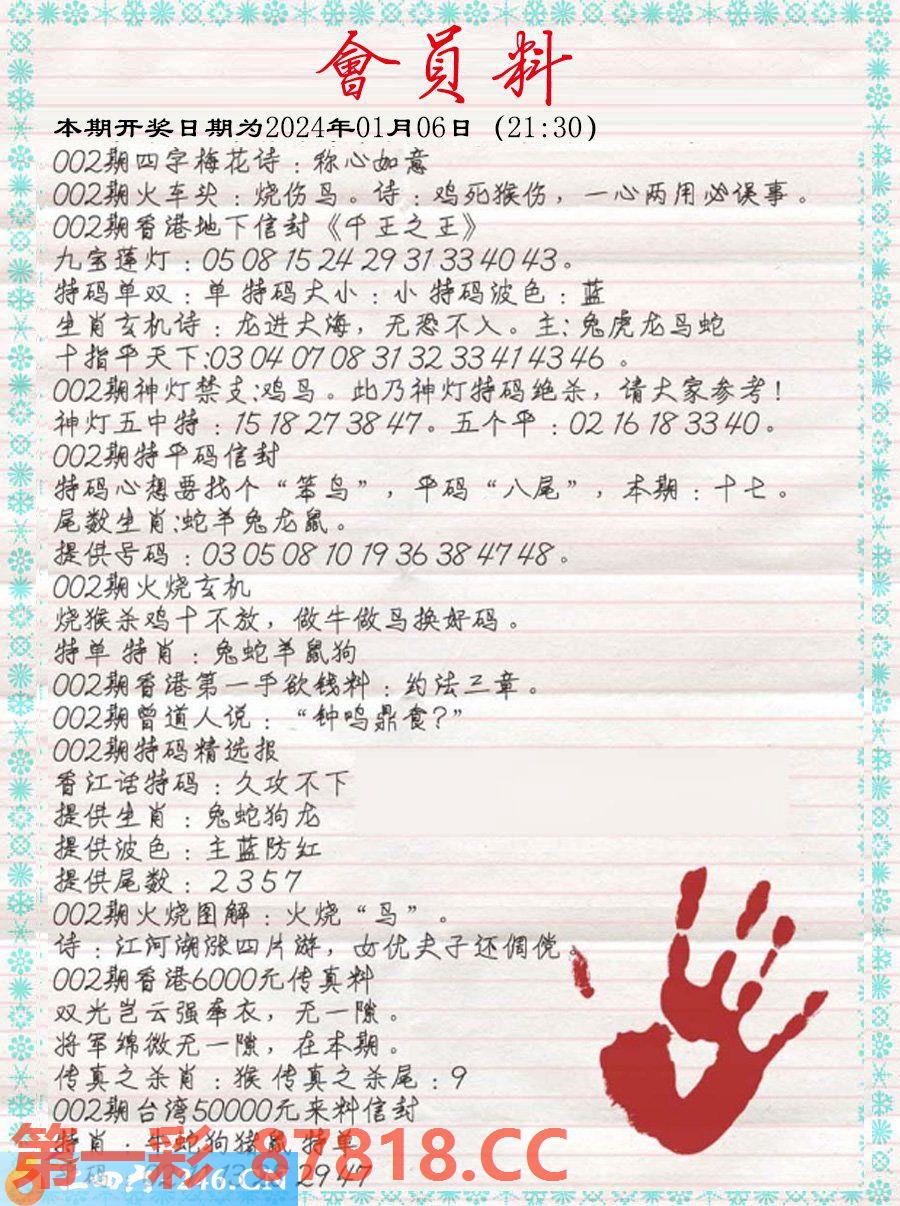 會員料
本期开奖日期为2024年01月06日（21:30）
002期四字梅花诗：称心如意
002期火车头：烧伤鸟。诗：鸡死猴伤，一心两用必误事。
002期香港地下信封《千王之王》
九宝莲灯：05 08 15 24 29 31 33 40 43。
特码单双：单 特码大小：小 特码波色：蓝
生肖玄机诗：龙进大海，无恐不入。主：兔虎龙马蛇
十指平天下:03 04 07 08 31 32 33 41 43 46 。
002期神灯禁支:鸡鸟。此乃神灯特码绝杀，请大家参考！
神灯五中特：15 18 27 38 47。五个平：02 16 18 33 40。
002期特平码信封
特码心想要找个“笨鸟”，平码“八尾”，本期：十七。
尾数生肖:蛇羊兔龙鼠。
提供号码：03 05 08 10 19 36 38 47 48。
002期火烧玄机
烧猴杀鸡十不放，做牛做马换好码。
特单 特肖：兔蛇羊鼠狗
002期香港第一手欲钱料：约法三章。
002期曾道人说：“钟鸣鼎食？”
002期特码精选报
香江话特码：久攻不下
提供生肖：兔蛇狗龙
提供波色：主蓝防红
提供尾数：2 3 5 7
002期火烧图解：火烧“鸟”。
诗：江河湖涨四片游，女优夫子还倜傥。
002期香港6000元传真料
双光岂云强牵衣，无一隙。
将军绵微无一隙，在本期。
传真之杀肖：猴 传真之杀尾：9
002期台湾50000元来料信封
特肖：牛蛇狗猪鼠 特单
第一彩 87818.CC
246.CN
13 29 47